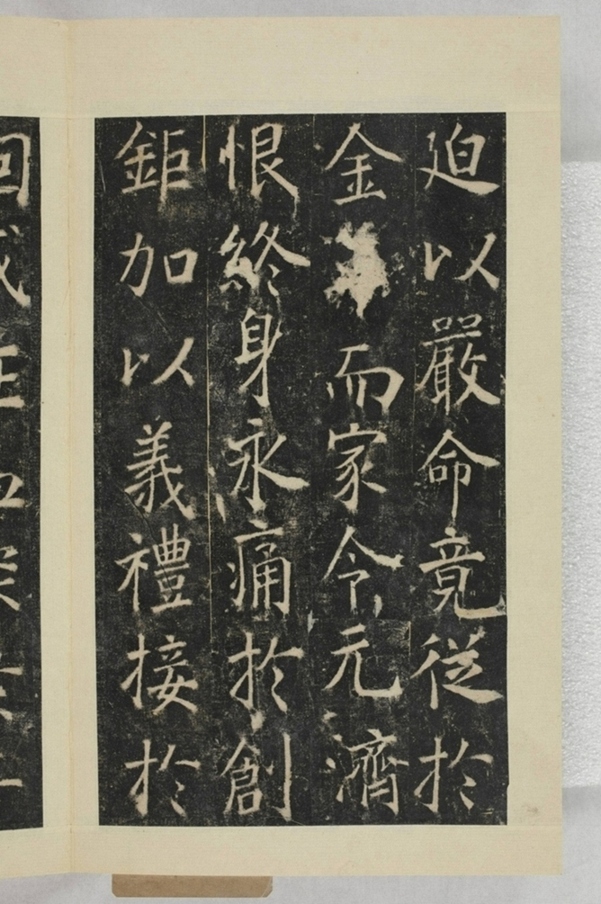 迫以嚴命竟從於
金 而家令元濟
恨終身永痛於創
鉅加以義禮接於